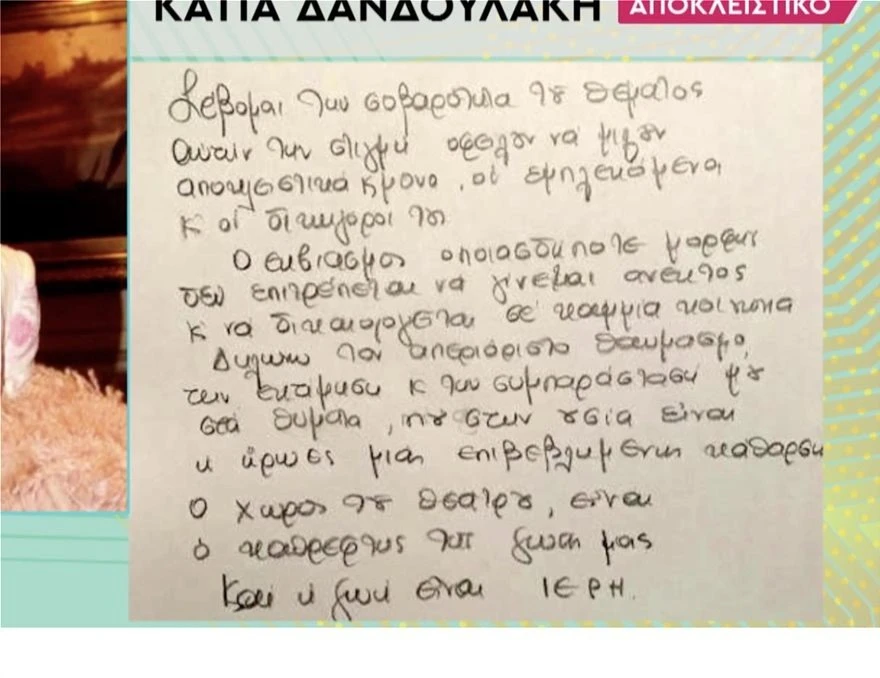 ΚΑΤΙΑ ΔΑΝΔΟΥΛΑΚΗ
ΑΠΟΚΛΕΙΣΤΙΚΟ
Σέβομαι την σοβαρότητα τȣ θέματος
αυτήν την στιγμή οφείλȣν να μιλȣν
αποκλειστικά κ μόνο, οι εμπλεκόμενοι
κ οι δικηγόροι τȣς
Ο εκβιασμός οποιασδήποτε μορφής
δεν επιτρέπεται να γίνεται ανεκτός
κ να δικαιολογείται σε καμμία κοινωνία
Δηλώνω τον απεριόριστο θαυμασμό,
την εκτίμηση κ την συμπαράσταση μȣ
στα θύματα, πȣ στην ȣσία είναι
κ ήρωες μιας επιβεβλημένης κάθαρσης
Ο χώρος τȣ θεάτρȣ, είναι
ο καθρέφτης της ζωής μας
Και η ζωή είναι ΙΕΡΗ.